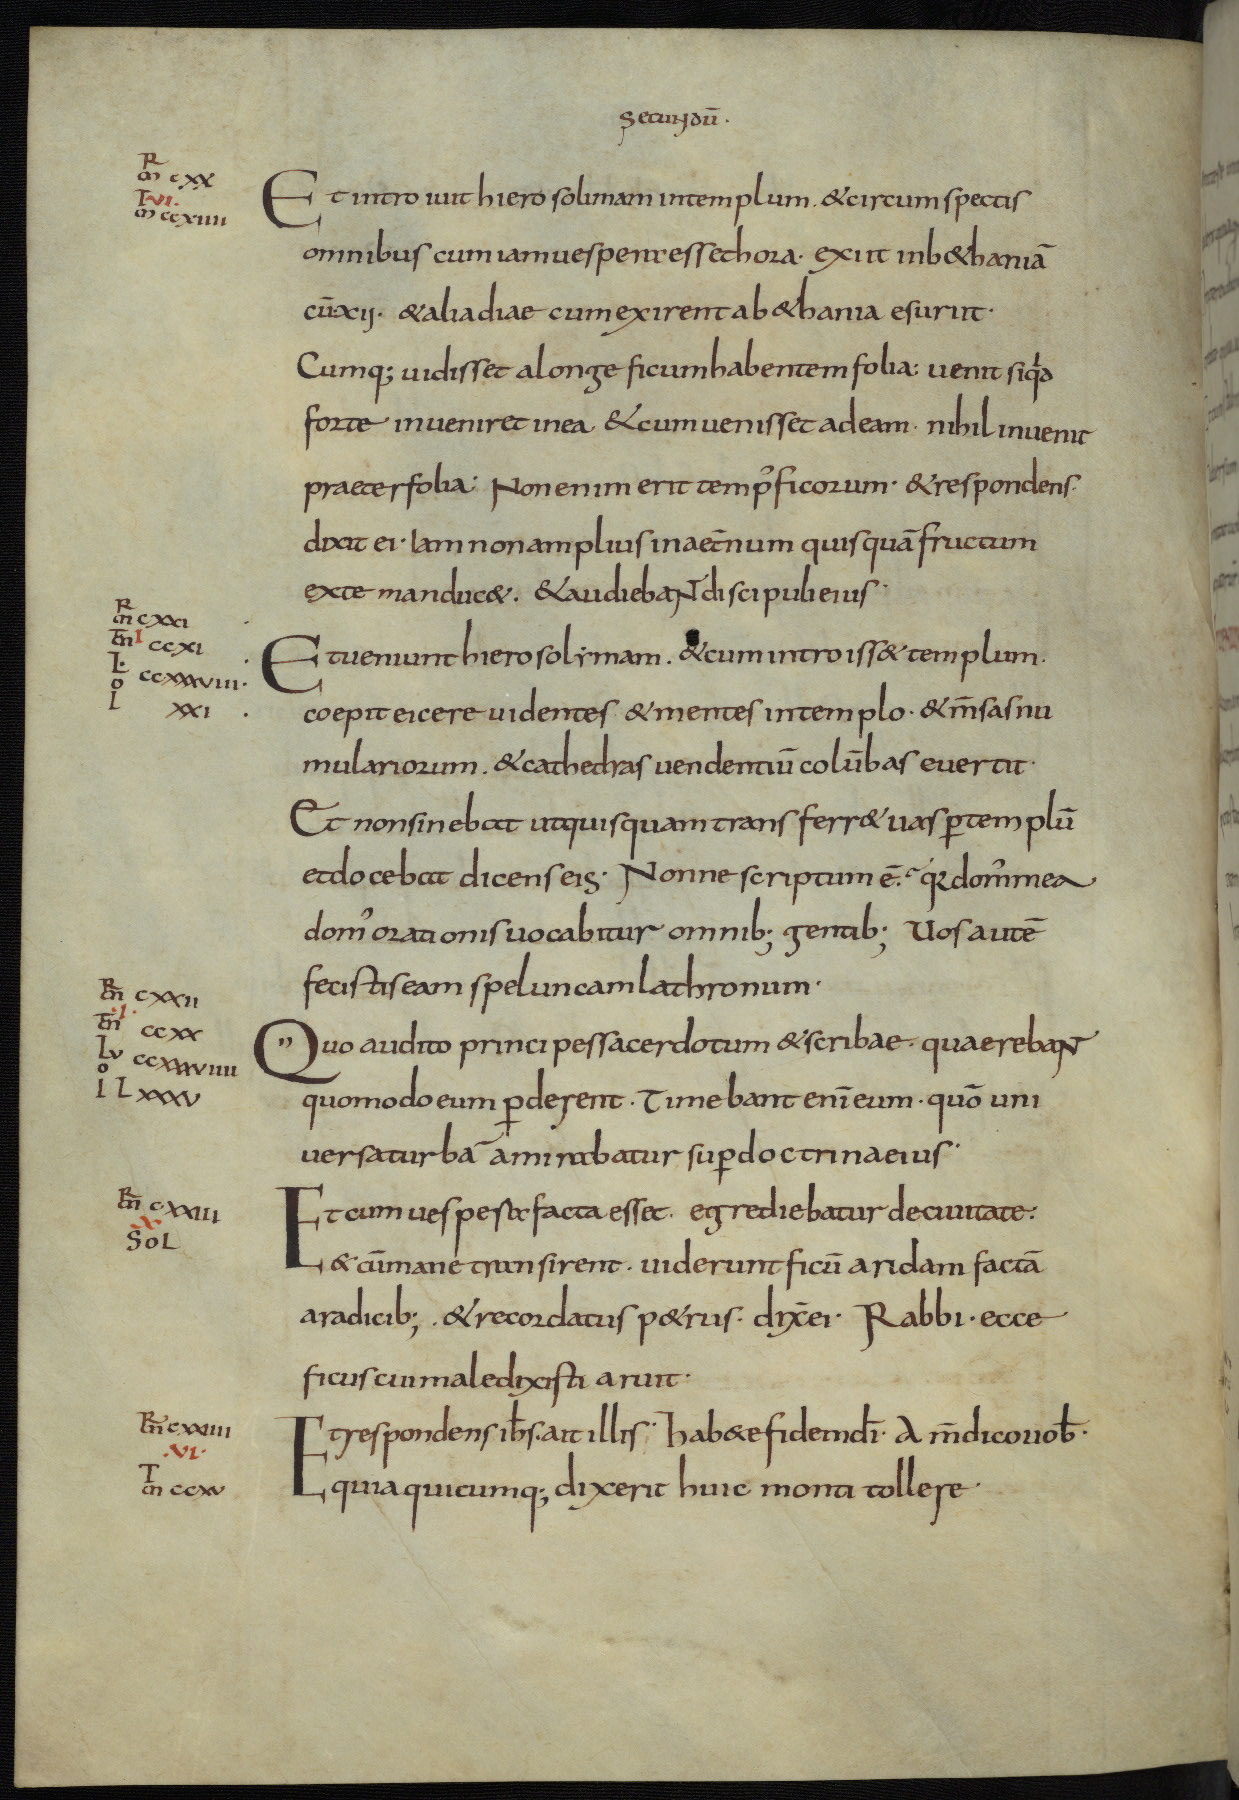 Secundū.
R
m cxx
T vi.
m ccxiiii
Et intro iuit hiero solimam intemplum. &circumspectis
omnibus cum iam uespera esset hora. exiit inb&haniā
cū xij. &alia diae cum exirent ab&hania esuriit.
Cumq; uidisset alonge ficum habentem folia: uenit siq́d
forte inueniret inea &cum uenisset adeam. nihil inuenit
praeter folia: Non enim erat temp᾽ ficorum. &respondens
dixit ei. Iam non amplius inaet̄num quisquā fructum
exte manduc&. &audiebaNt discipuli eius.
R
m cxxi
T
m I ccxi
L.
o ccxxxviii.
I xxi.
Et ueniunt hierosolymam. &cum introiss& templum.
coepit eicere uidentes &mentes intemplo. &m̄sas nu
mulariorum. &cathedras vendentiū colūbas evertit.
Et non sinebat utquisquam transferr& uas p̄ templū
et docebat dicens eis. Nonne scriptum ē. q᾽a dom᾽ mea
dom᾽ orationis uocabitur omnib; gentib; Vos autē
fecistis eam speluncam lathronum.
R
m cxxii
T
m I. ccxx
Lv
o ccxxxviiii
I Lxxxv
Quo audito principes sacerdotum &scribae. quaerebaNt
quomodo eum p̄derent. Timebant enī eum. quō uni
uersa turba āmirabatur sup̄ doctrina eius.
R
m cxxiii
x
Sol
Et cum uespera facta esset. egrediebatur deciuitate:
&cū mane transirent. uiderunt ficū aridam factā
aradicib; . &recordatus p&rus. dix̄ ei. Rabbi. ecce
ficus cui maledixisti aruit.
R
m cxxiiii
.vi.
T
m ccxv
Et respondens ih̄s. ait illis. hab&e fidem dī. A m̄ dico uob̄.
quia quicumq; dixerit huic monti tollere.